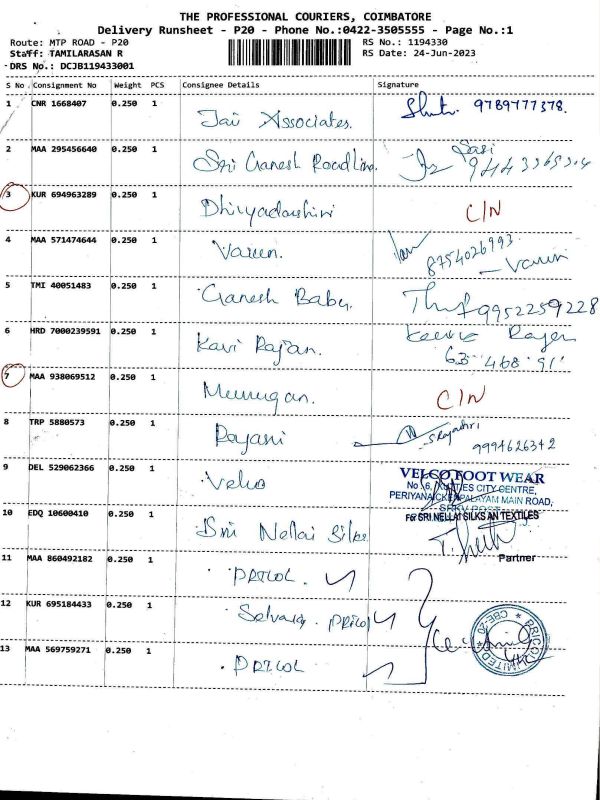 THE PROFESSIONAL COURIERS, COIMBATORE
Delivery Runsheet - P20 - Phone No.:0422-3505555 - Page No.:1
Route: MTP ROAD - P20 RS No.: 1194330
Staff: TAMILARASAN R RS Date: 24-Jun-2023
DRS No.: DCJB119433001
S No Consignment No Weight PCS Consignee Details Signature
1 CNR 1668407 0.250 1 Jai Associates. 9789777378.
2 MAA 295456640 0.250 1 Sri Ganesh Roadline. Sasi
3 KUR 694963289 0.250 1 Dhivyadarshini C/N
4 MAA 571474644 0.250 1 Varun. 8754026993 - Varun
5 TMI 40051483 0.250 1 Ganesh Babu. 9952259228
6 HRD 7000239591 0.250 1 Kavi Rajan.
63 468 91
7 MAA 938069512 0.250 1 Murugan. C/N
8 TRP 5880573 0.250 1 Rajani 9994626342
9 DEL 529062366 0.250 1 Velco VELCO FOOT WEAR
CITY CENTRE,
PERIYANAICKENPALAYAM MAIN ROAD,
SRKV POST
10 EDQ 10600410 0.250 1 Sri Nellai Silks For SRI NELLAI SILKS AN TEXTILES
Partner
11 MAA 860492182 0.250 1 PRICOL.
12 KUR 695184433 0.250 1 PRICOL
13 MAA 569759271 0.250 1 PRICOL
PRICOL LIMITED CBE-20